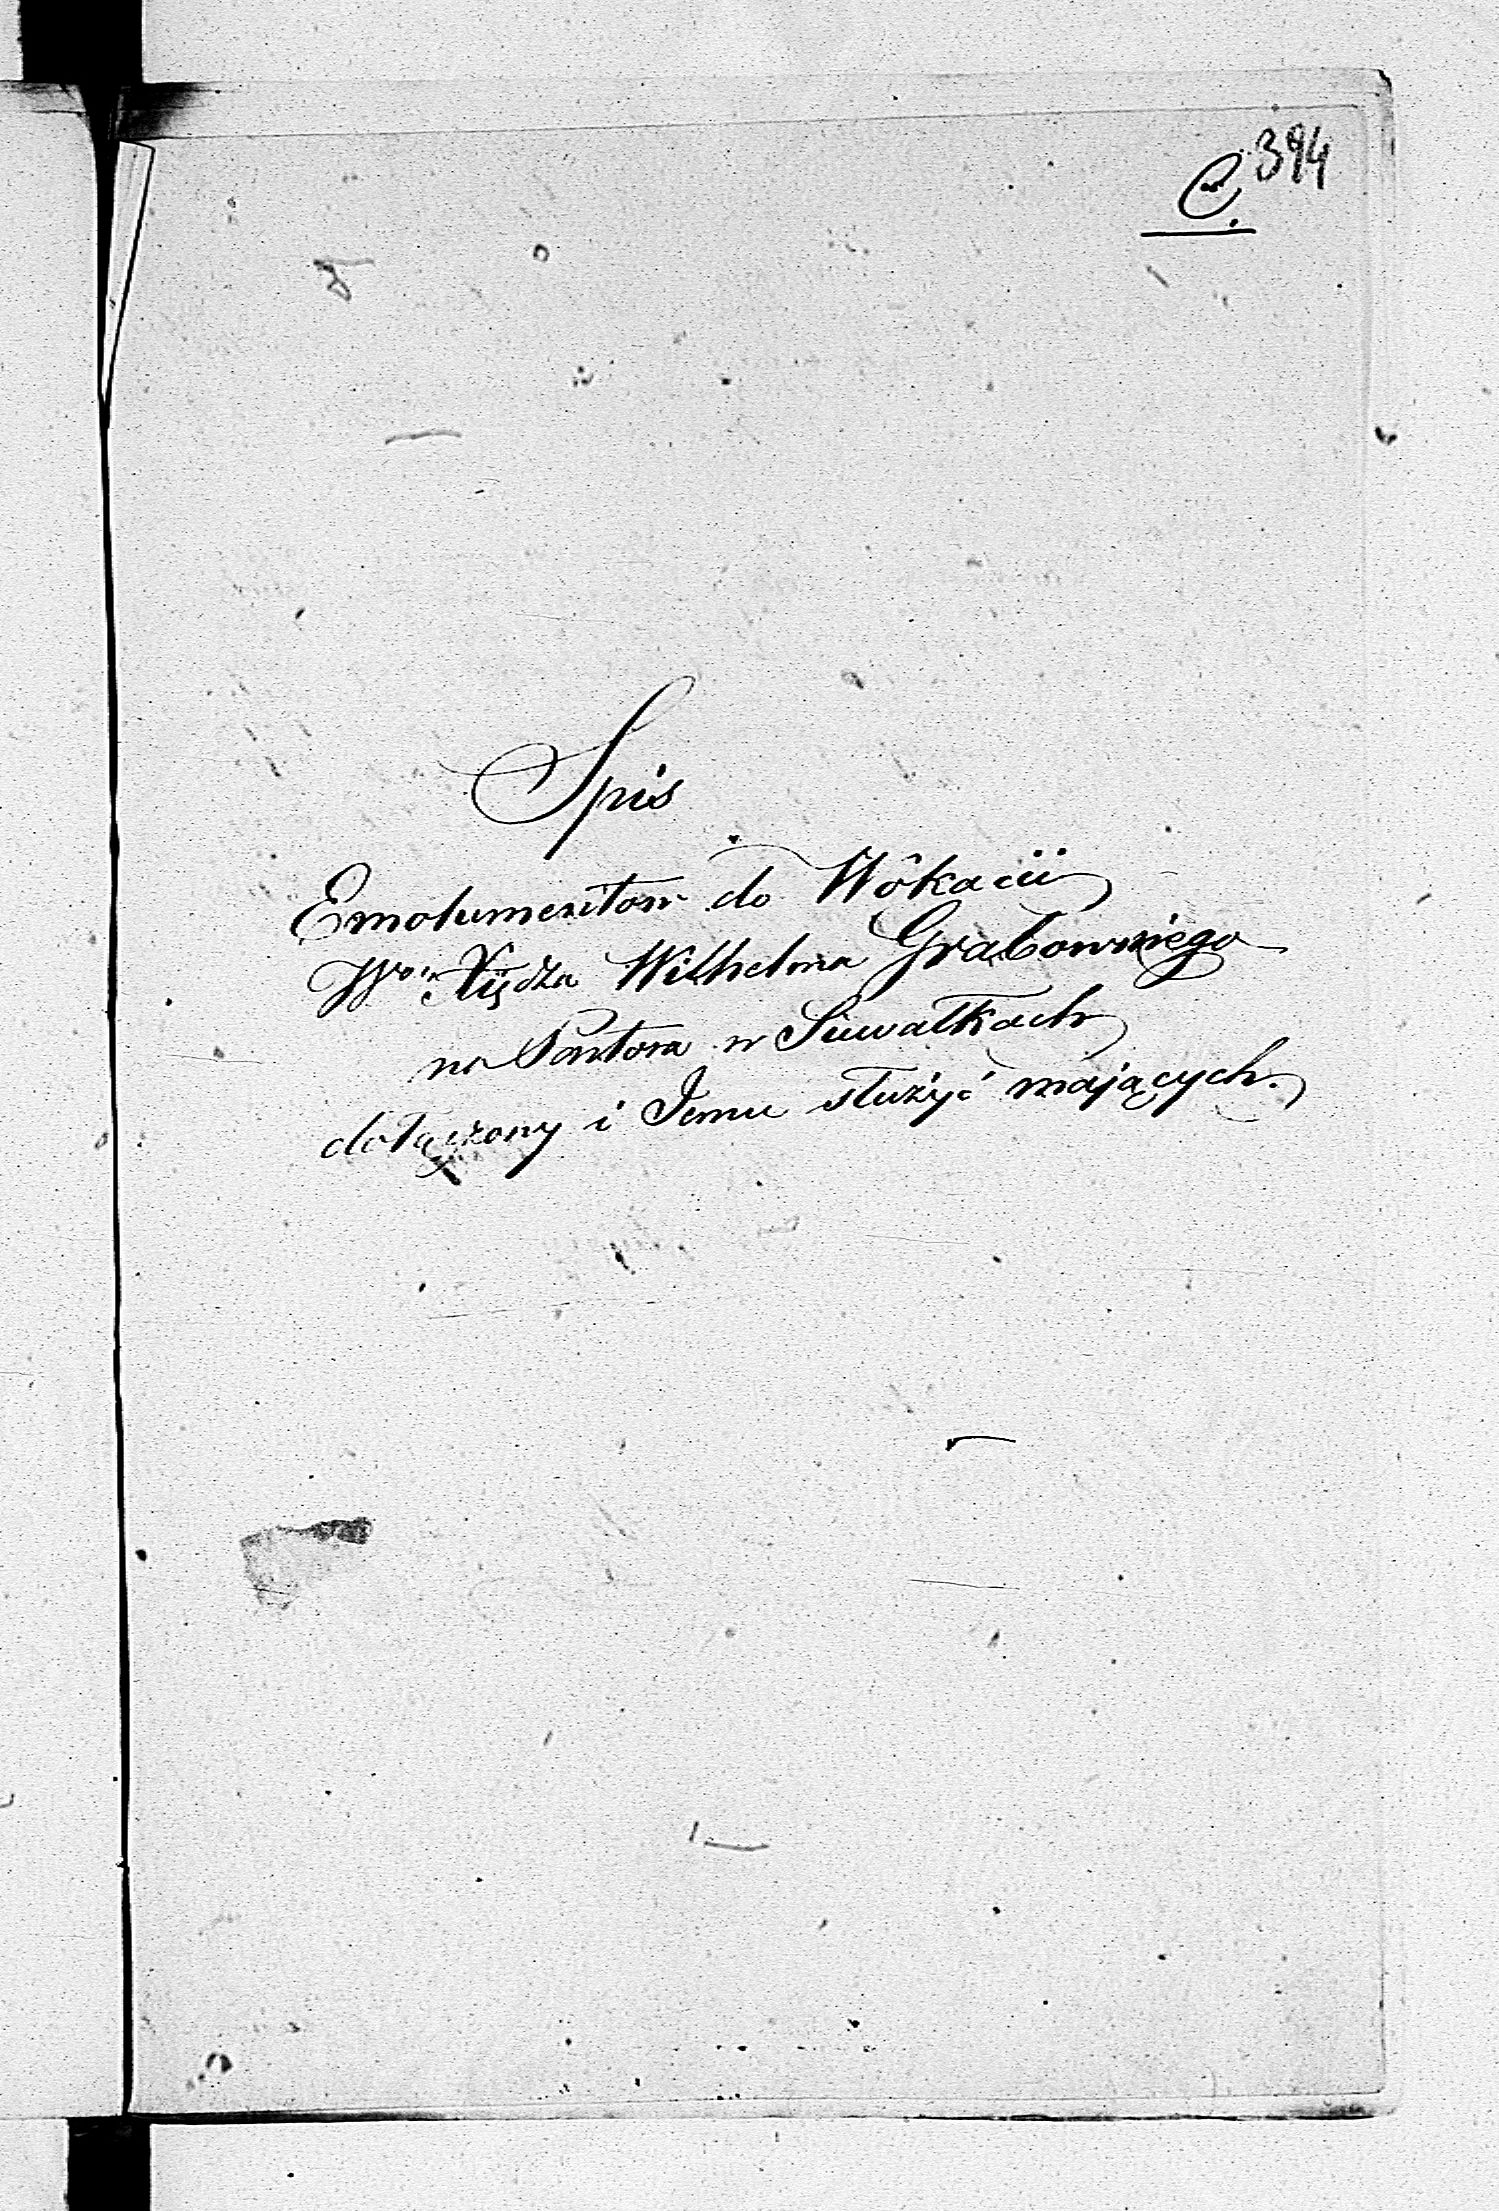 C. 394
Spis
Emolumentow do Wokacii
Wo. Xiędza Wilhelma Grabowskiego
na Pastora w Suwałkach
dołączony i Jemu służyć mających.